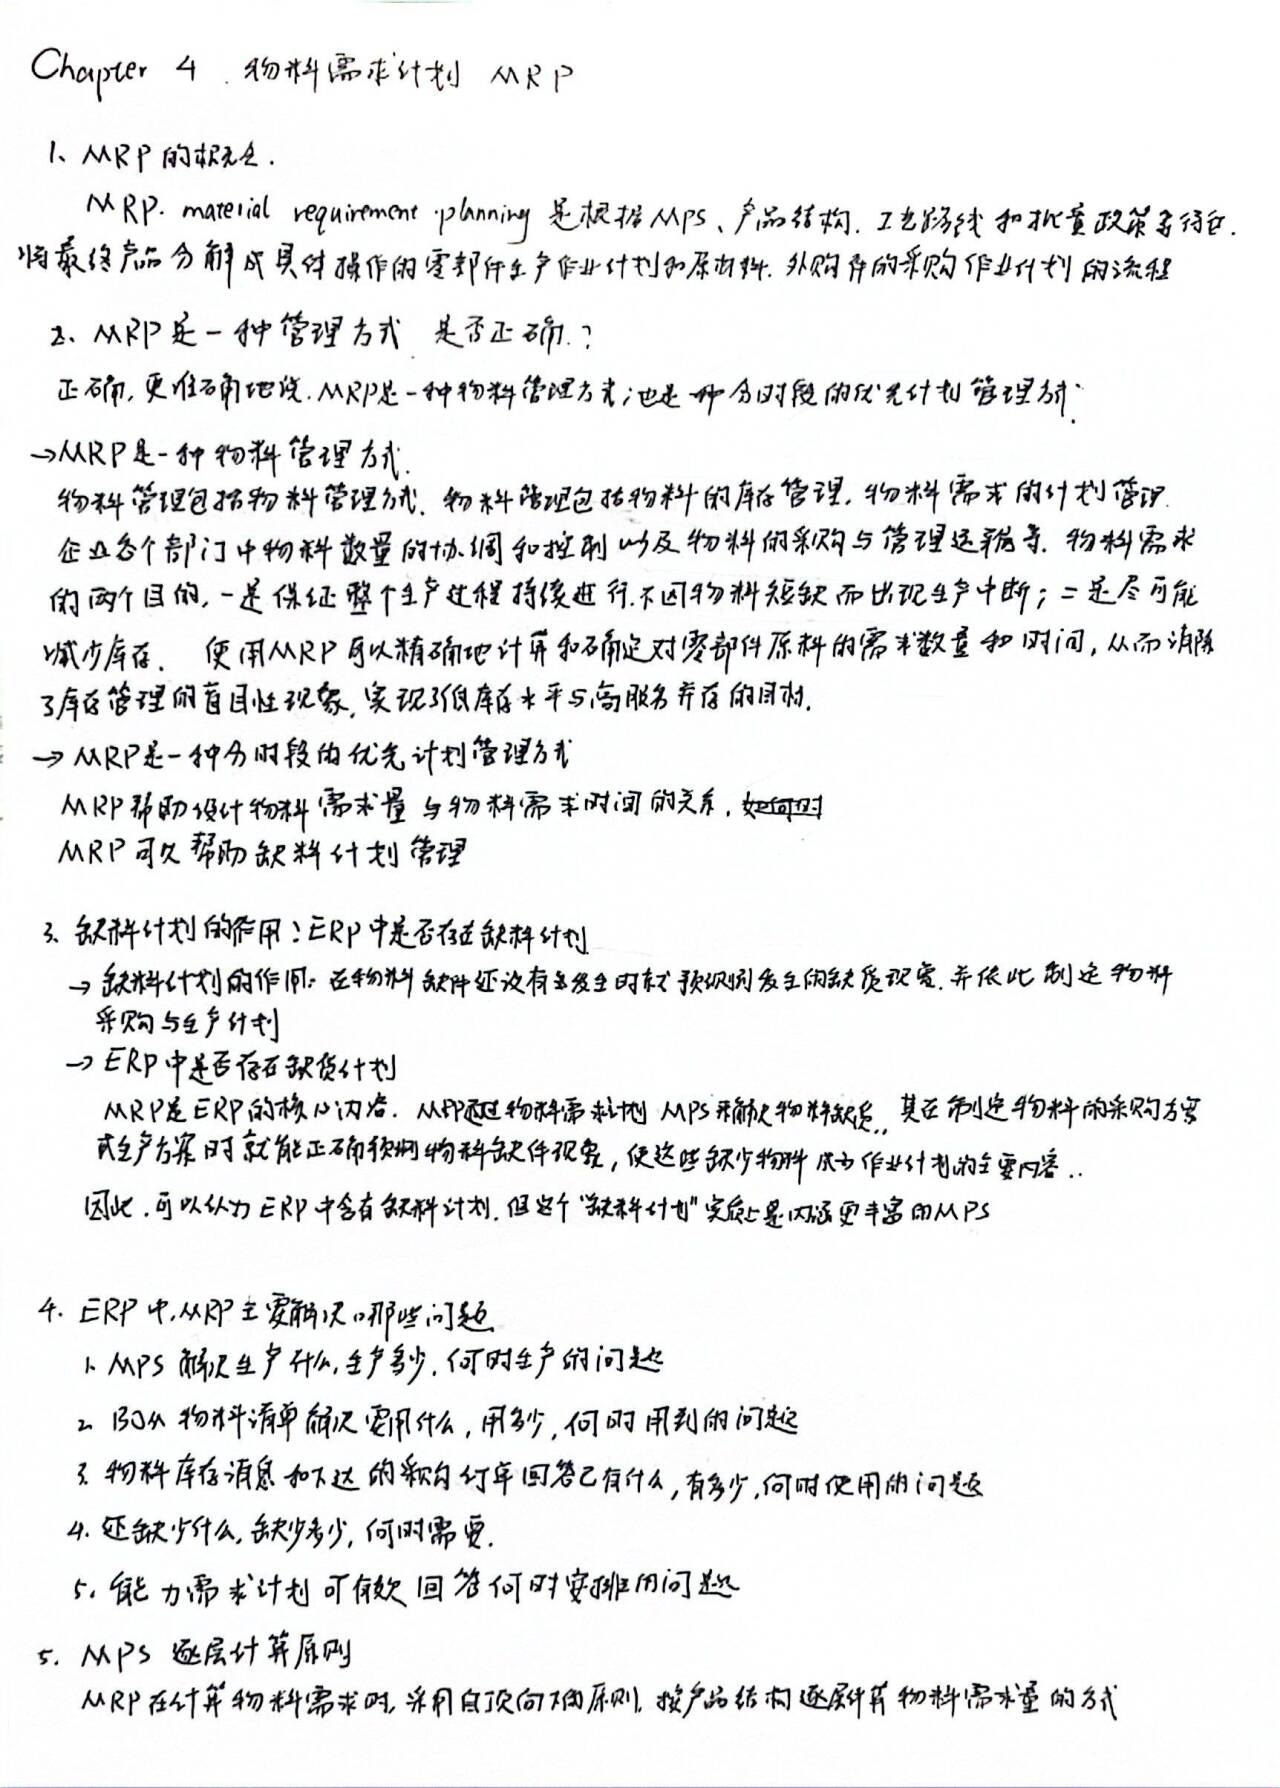 Chapter 4. 物料需求计划 MRP
1、MRP的概念.
MRP. material requirement planning 是根据MPS、产品结构. 工艺路线和批量政策等信息.
将最终产品分解成具体操作的零部件生产作业计划和原材料. 外购件的采购作业计划的流程
2、MRP是一种管理方式 是否正确.?
正确, 更准确地说. MRP是一种物料管理方式; 也是一种分时段的优先计划管理方式.
→MRP是一种物料管理方式.
物料管理包括物料管理方式. 物料管理包括物料的库存管理. 物料需求的计划管理.
企业各个部门中物料数量的协调和控制以及物料的采购与管理运输等. 物料需求
的两个目的, 一是保证整个生产过程持续进行. 不因物料短缺而出现生产中断; 二是尽可能
减少库存. 使用MRP可以精确地计算和确定对零部件原料的需求数量和时间, 从而消除
了库存管理的盲目性现象. 实现了低库存水平与高服务并存的目标.
→ MRP是一种分时段的优先计划管理方式
MRP帮助设计物料需求量与物料需求时间的关系, 如何对
MRP可以帮助缺料计划管理
3. 缺料计划的作用? ERP中是否存在缺料计划
→ 缺料计划的作用: 在物料缺件还没有发生时就预测到发生的缺货现象. 并依此制定物料
采购与生产计划
→ ERP中是否存在缺货计划
MRP是ERP的核心内容. MRP通过物料需求计划 MPS来解决物料缺货., 其在制定物料的采购方案
或生产方案时就能正确预测物料缺件现象, 使这些缺少物料成为作业计划的主要内容..
因此. 可以认为ERP中含有缺料计划. 但这个"缺料计划"实质上是内涵更丰富的MPS
4. ERP中, MRP主要解决哪些问题
1. MPS 解决生产什么, 生产多少. 何时生产的问题
2 BOM 物料清单解决要用什么, 用多少, 何时用到的问题
3. 物料库存消息和下达的采购订单回答已有什么, 有多少, 何时使用的问题
4. 还缺少什么, 缺少多少, 何时需要.
5. 能力需求计划可有效回答何时安排的问题
5. MPS 逐层计算原则
MRP在计算物料需求时, 采用自顶向下的原则. 按产品结构逐层计算物料需求量的方式